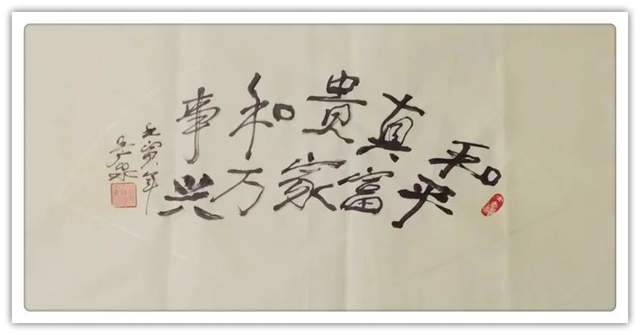 和平
真富
貴家
和万
事兴
壬寅年